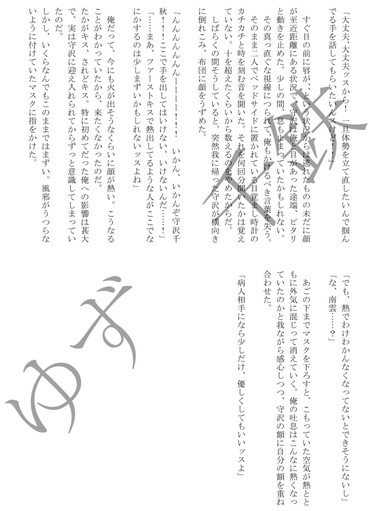 「大丈夫、大丈夫ッスから！　一旦体勢を立て直したいんで掴ん
でる手を話してもらいたいんだけど！！」
すぐ目の前に唇が、という状況からは逃れたものの未だに顔
が至近距離にある状況で、守沢は俺と目があった途端、ピタリ
と動きを止めた。もしかしたら間、息も止まっていたかもしれない。
その真っ直ぐな視線につられ、俺もべき言葉を失う。
そのまま二人でベッドサイドに置かれている目覚まし時計の
カチカチと時を刻む音を聞いた。それを何回分聞いたかは覚え
ていない。十を超えたくらいから数えるのをやめたからだ。
しばらくの間そうしていると、突然我に帰った守沢が横向き
に倒れこみ、布団に顔をうずめた。
「んんんんんん――――！！！　いかん、いかんぞ守沢千
秋！！！ここで手を出してはいけない、いけないんだ……！」
「……まあ、ファーストキスで熱出してるような人がここでな
にかするのは少しまずいかもしれないッスよね」
俺だって、今にも火が出そうなくらいに顔が熱い。こうなる
ことがわかっていたから、来たくなかったのだ。
たかがキス、されどキス。特に初めてだった俺への影響は甚大
で、実は守沢に迎え入れられてからずっと意識してしまってい
たのだ。
しかし、いくらなんでもこのままではまずい。風邪がうつらな
いように付けていたマスクに指をかけた。
「でも、熱でわけわかんなくなってないとできそうにないし」
「な、南雲……？」
あごの下までマスクを下ろすと、こもっていた空気が熱とと
もに外気に混じって消えていく。俺の吐息はこんなに熱くなっ
ていたのかと我ながら感心しつつ、守沢の額に自分の額を重ね
合わせた。
「病人相手になら少しだけ、優しくしてもいいッスよ」
ゆず